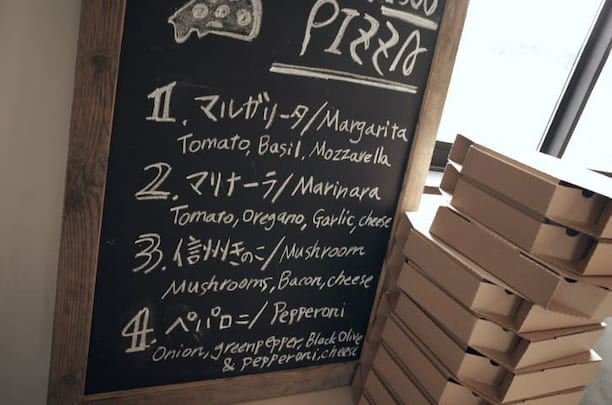 PIZZA
1. マルゲリータ/Margarita
Tomato, Basil, Mozzarella
2. マリナーラ/Marinara
Tomato, Oregano, Garlic, cheese
3. 信州きのこ/Mushroom
Mushrooms, Bacon, cheese
4. ペパロニ/Pepperoni
Onion, green pepper, Black Olive
& pepperoni, cheese